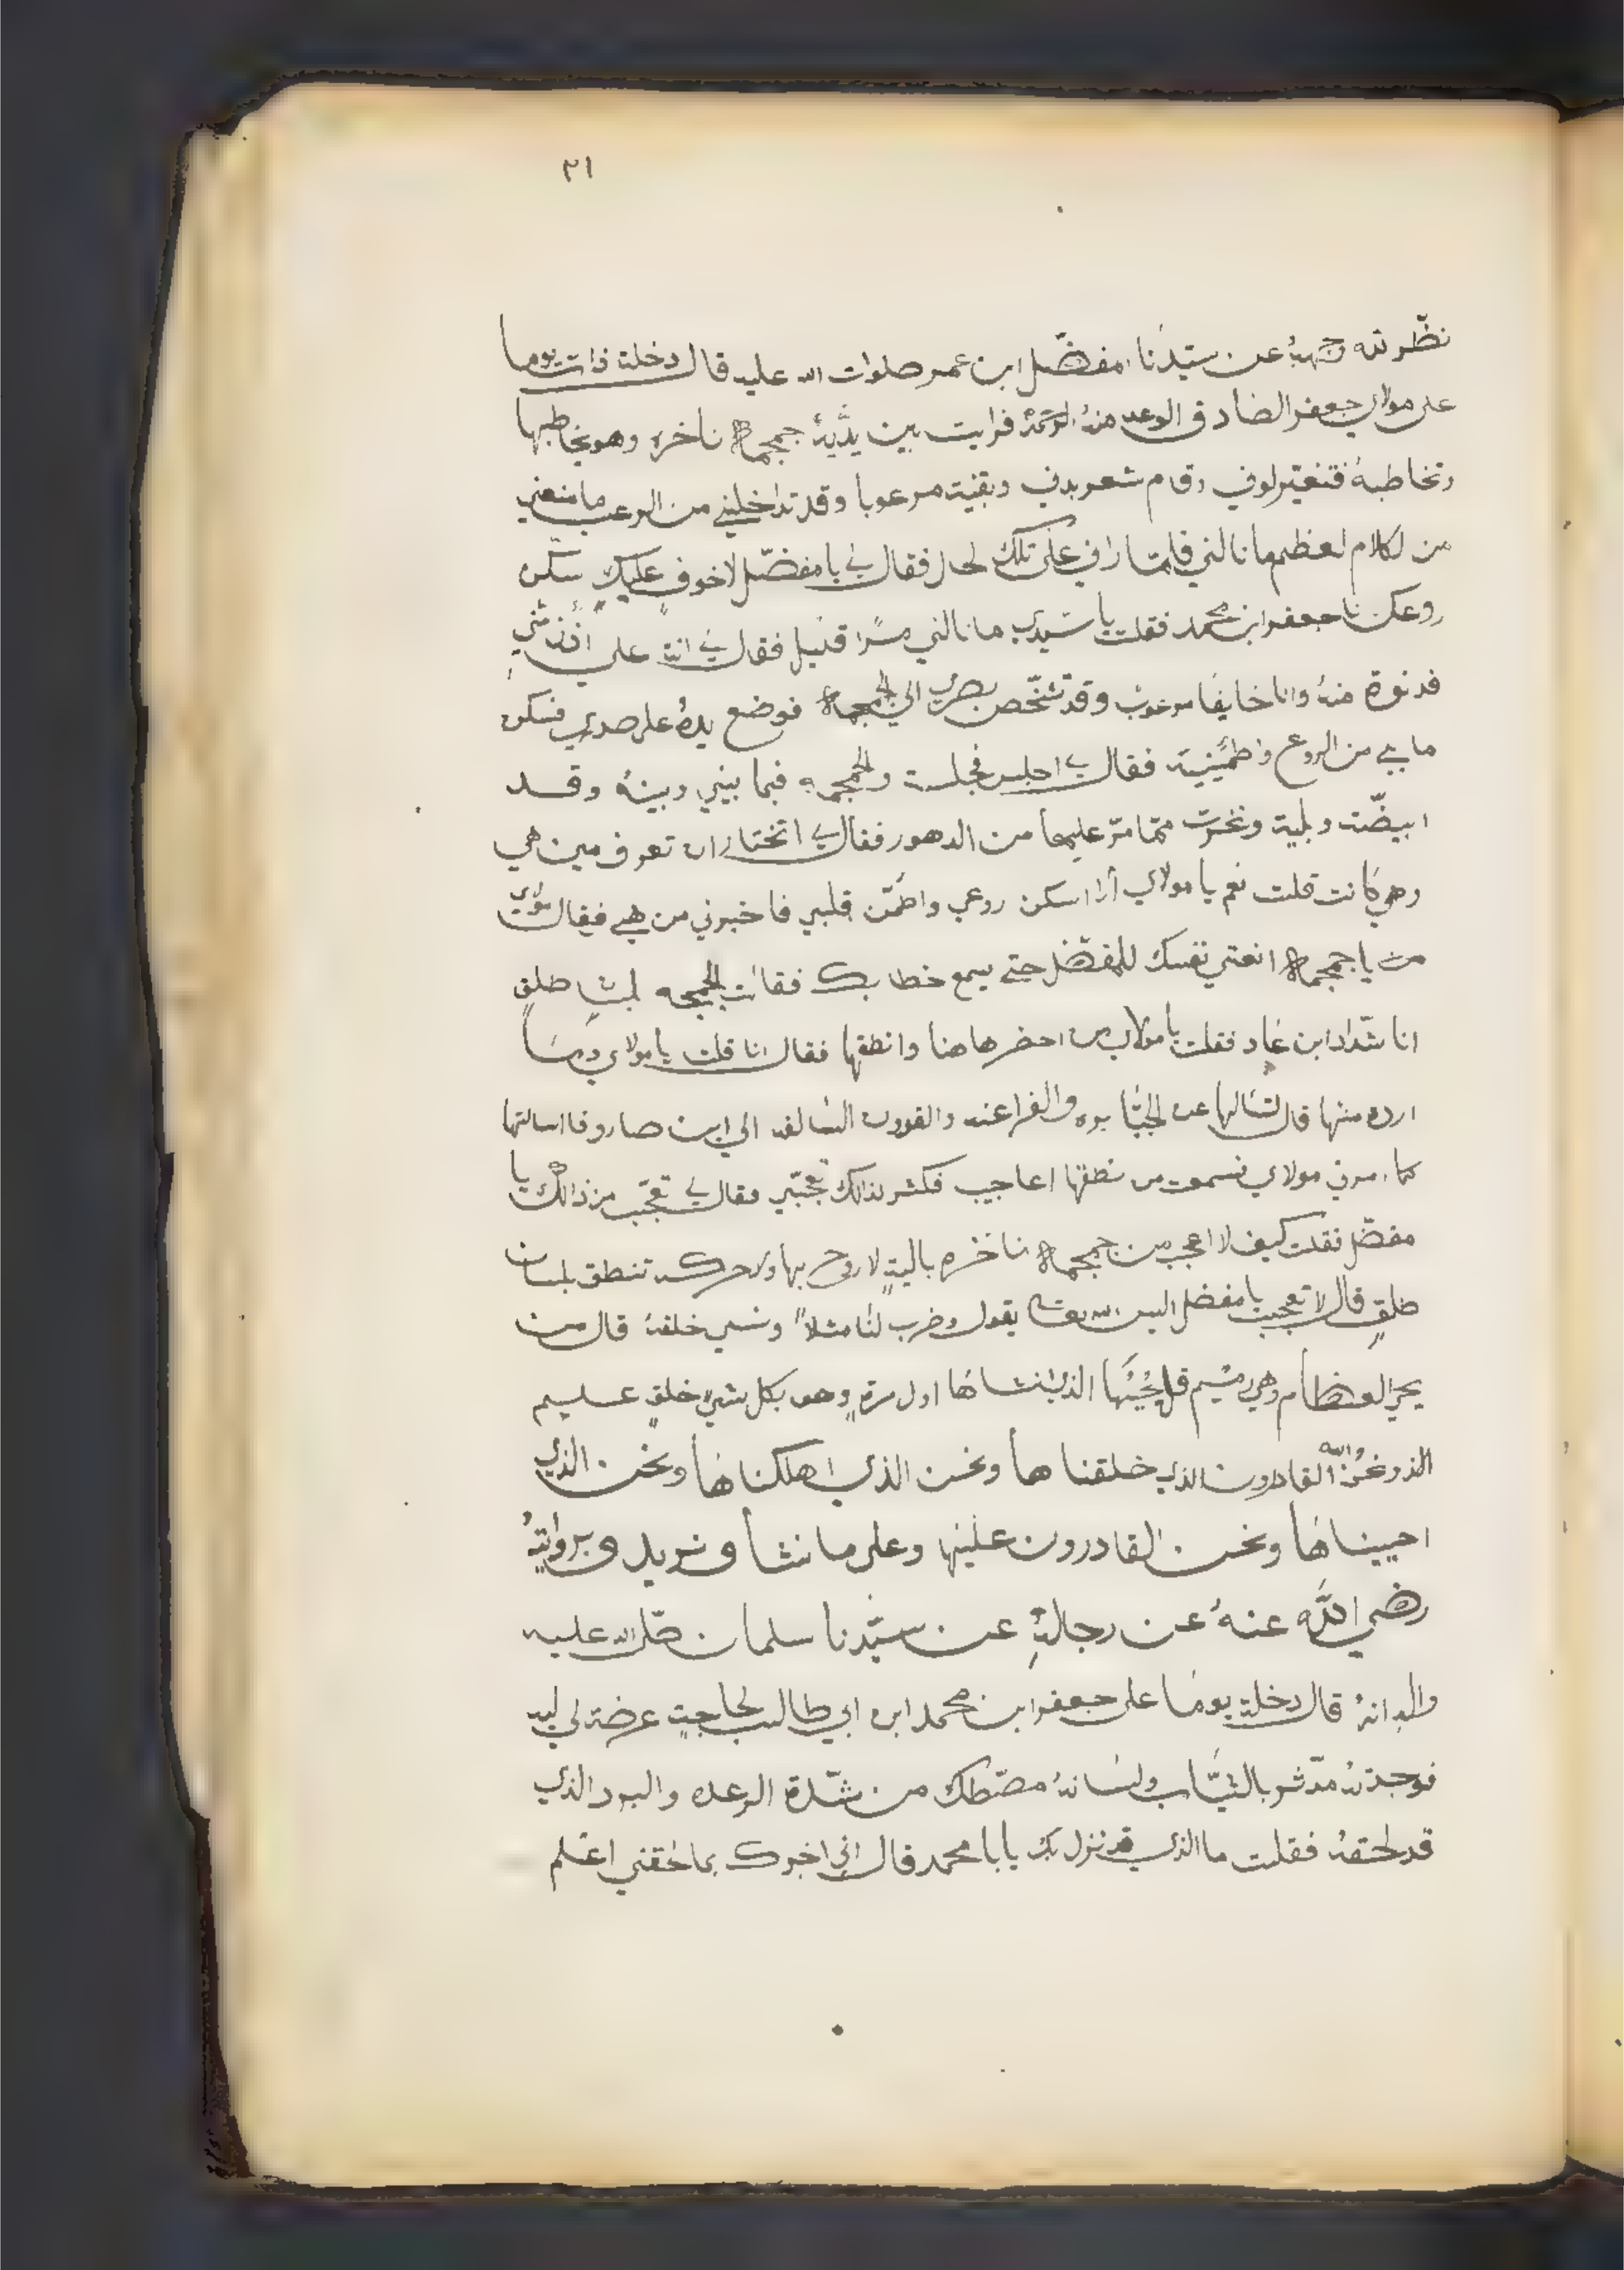 ٣١
نظّر لله وجهه عن سيّدنا مفضّل ابن عمر صلوات الله عليه قال دخلة ذات يوما
على مولاي جعفر الصادق الوعد منهُ الرحمة فرايت بين يدَيهُ جمجماه ناخره وهو يخاطبها
وتخاطبهُ فتغيّر لوني وقام شعر بدني وبقيت مرعوبا وقد تداخلني من الرعب ما منعني
من لكلام لعظيم ما نالني فلمّا راني على تلك لحال فقال لي يا مفضّل لا خوف عليك سكّن
روعك انا جعفر ابن محمد فقلت يا سيدي ما نالني مسرا قليل فقال لي انت علي
فدنوة منهُ وانا خايفا مرعوب وقد تشخّص بصري الي الجمجماه فوضع يدهُ على صدري فسكن
ما بي من الروع واطمينية فقال لي اجلس فجلست والجمجمه فيما بيني وبينهُ وقد
ابيضّت وبلية ونخرت ممّا مرّ عليها من الدهور فقال لي اتختار ان تعرف مين هي
وهي كانت قلت نعم يا مولاي اذا سكن روعي واطمّن قلبي فاخبرني من هي فقال مولاي
من يا جمجماه انعتي نفسك للمفضّل حتى يسمع خطابك فقالت الجمجمه بلسان طلقٍ
انا شدّاد ابن عاد فقلت يا مولاي من احضرها هنا وانطقها فقال انا قلت يا مولاي وما
ارده منها قال لتسالها عن الجبّابره والفراعنه والقرون السالفه الي اين صاروفا اسالتها
كما امرني مولاي فسمعت من نطقها اعاجيب فكثر لذالك تعجّبي فقال لي تعجّب من ذالك يا
مفضّل فقلت كيف لا اعجب من جمجماه ناخره باليةٍ لا روح بها ولا حركه تنطق بلسان
طلقٍ قال لا تعجب يا مفضل اليس الله تعالى يقول وضرب لنا مثلاً ونسي خلقهُ قال من
يحي العظام وهي رميم قل يُحيّها الذي انشاها اول مرةٍ وهو بكل شي خلقٍ عليم
الذي ونحن الله القادرون الذي خلقنا ها ونحن الذي اهلكنا ها ونحن الذي
احييناها ونحن القادرون عليها وعلى ما نشا ونريد وبرواية
رضي الله عنهُ عن رجالهِ عن سيّدنا سلمان صلّ الله عليه
واله انهُ قال دخلة يومًا على جعفر ابن محمد ابن ابي طالب لحاجتٍ عرضة لي ليه
فوجدتهُ مدّثر بالثيّاب ولسانهُ مصّطك من شدّة الرعده والبرد الذي
قد لحقهُ فقلت ما الذي قد نزل بك يا با محمد قال اني اخبرك بما لحقني اعلم